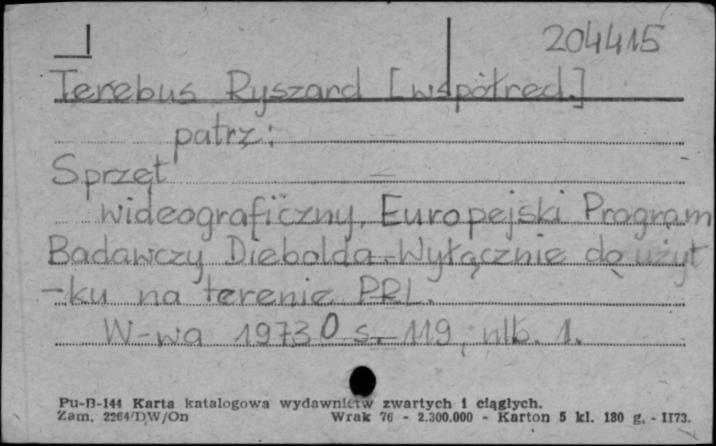 204415
Terebus Ryszard [współred.]
patrz:
Sprzęt
wideograficzny, Europejski Program
Badawczy Diebolda. Wyłącznie do użyt
-ku na terenie PRL.
W-wa 1973 0 s. 119, nlb. 1.
Pu-B-144 Karta katalogowa wydawnictw zwartych i ciągłych.
Zam. 2264/DW/On Wrak 76 - 2.300.000 - Karton 5 kl. 180 g. - II73.